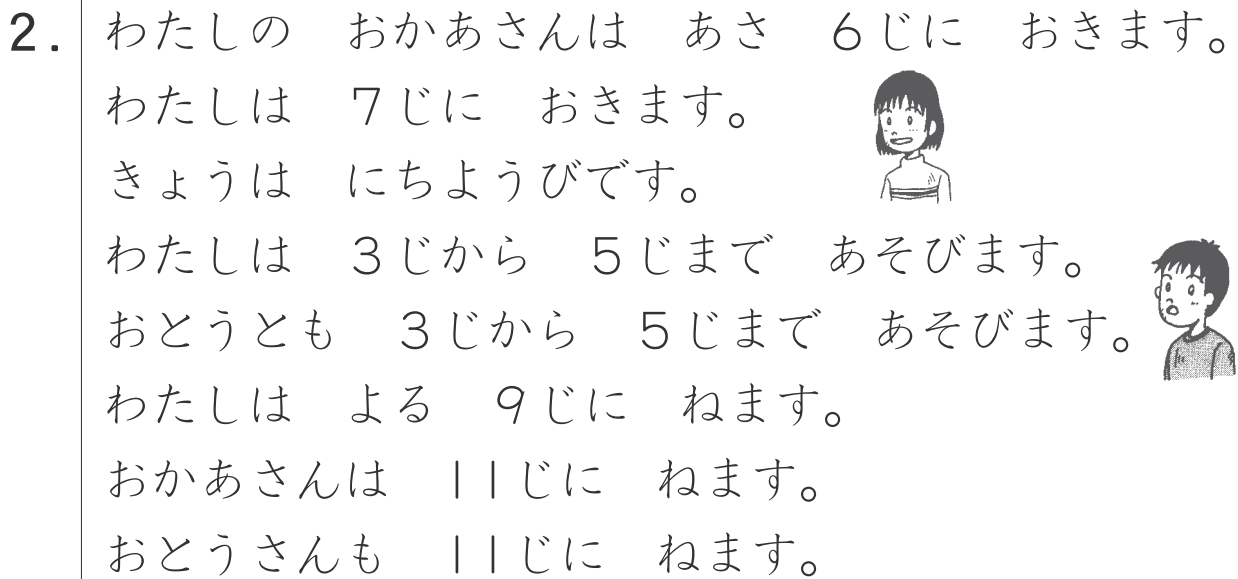 2. わたしの　おかあさんは　あさ　6じに　おきます。
わたしは　7じに　おきます。
きょうは　にちようびです。
わたしは　3じから　5じまで　あそびます。
おとうとも　3じから　5じまで　あそびます。
わたしは　よる　9じに　ねます。
おかあさんは　11じに　ねます。
おとうさんも　11じに　ねます。